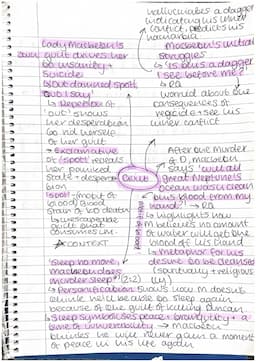 hallucinates a dagger
indicating his inner
conflict, predicts his
Lady Macbeth's
own guilt drives her
to insanity +
suicide
'Out damned spot,
out I say'
↳ Repetition of
'out' shows
her desperation
to rid herself
of her guilt
↳ Exclamative
of 'spot' reveals
her panicked
state + desperation
↳ Spot (motif of
blood) good
stain of no death
inescapable
guilt that
consumes LM.
CONTEXT
Macbeth's initial
struggles
'Is this a dagger
I see before me?'
↳ RQ
worried about the
consequences of
regicide + see his
inner conflict
Guilt
After the murder
of D, macbeth
says 'will all
great Neptune's
Ocean wash clean
this blood from my
hand' → RQ
↳ Highlights how
M believes no amount
of water will get the
blood off his hand
↳ metaphor for his
desire to be cleansed
(spiritually + religiously)
'Sleep no more,
macbeth does
murder sleep' (2:2)
↳ Personification shows how M doesn't
think he'll be able to sleep again
because of the guilt of killing Duncan
↳ Sleep symbolises peace + a
time of vulnerability → macbeth
thinks he will never gain a moment
of peace in his life again